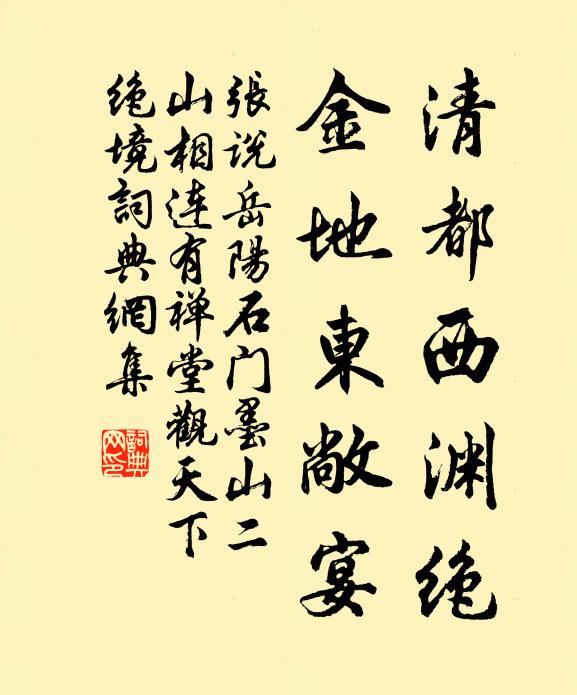 清都西渊绝
金地東敞宴
張说岳陽石门墨山二
山相连有禅堂觀天下
绝境詞典網集
詞典
网印